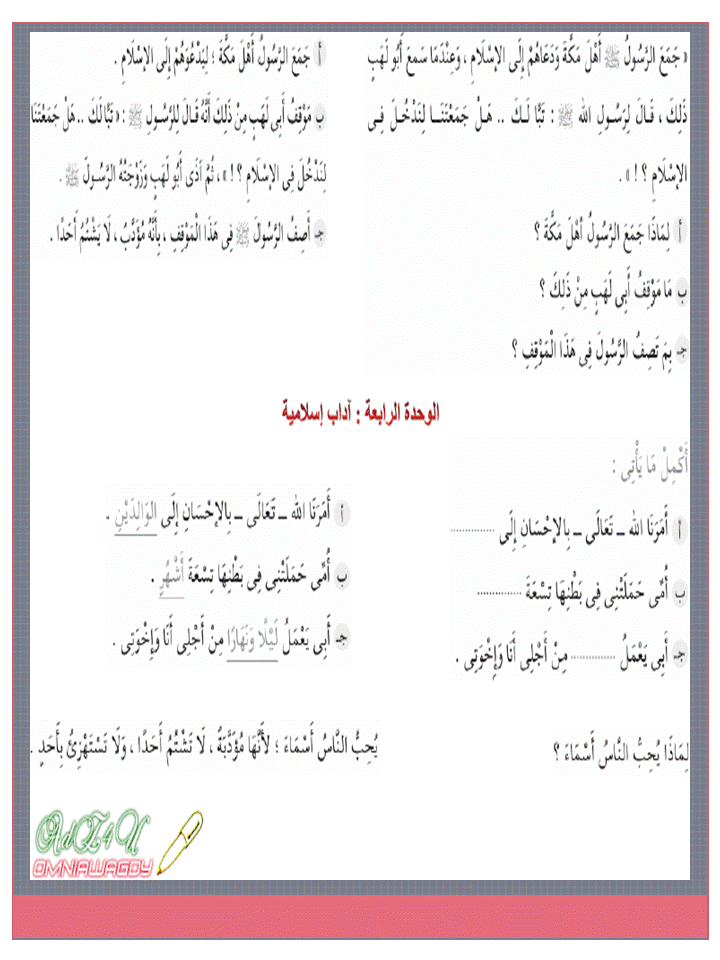 « جَمَعَ الرَّسُولُ ﷺ أَهْلَ مَكَّةَ وَدَعَاهُمْ إِلَى الإِسْلَامِ ، وَعِنْدَمَا سَمِعَ أَبُو لَهَبٍ
ذَلِكَ ، قَالَ لِرَسُولِ الله ﷺ : تَبًّا لَكَ .. هَلْ جَمَعْتَنَا لِنَدْخُلَ فِى
الإِسْلَامِ ؟ ! » .
أ لِمَاذَا جَمَعَ الرَّسُولُ أَهْلَ مَكَّةَ ؟
ب مَا مَوْقِفُ أَبِى لَهَبٍ مِنْ ذَلِكَ ؟
جـ بِمَ تَصِفُ الرَّسُولَ فِى هَذَا الْمَوْقِفِ ؟
أ جَمَعَ الرَّسُولُ أَهْلَ مَكَّةَ ؛ لِيَدْعُوَهُمْ إِلَى الإِسْلَامِ .
ب مَوْقِفُ أَبِى لَهَبٍ مِنْ ذَلِكَ أَنَّهُ قَالَ لِلرَّسُولِ ﷺ : « تَبًّا لَكَ .. هَلْ جَمَعْتَنَا
لِنَدْخُلَ فِى الإِسْلَامِ ؟ ! » ، ثُمَّ آذَى أَبُو لَهَبٍ وَزَوْجَتُهُ الرَّسُولَ ﷺ .
جـ أَصِفُ الرَّسُولَ ﷺ فِى هَذَا الْمَوْقِفِ ، بِأَنَّهُ مُؤَدَّبٌ ، لَا يَشْتُمُ أَحَدًا .
الوحدة الرابعة : آداب إسلامية
أَكْمِلْ مَا يَأْتِى :
أ أَمَرَنَا الله ــ تَعَالَى ــ بِالإِحْسَانِ إِلَى ..............
ب أُمِّى حَمَلَتْنِى فِى بَطْنِهَا تِسْعَةَ ..............
جـ أَبِى يَعْمَلُ .............. مِنْ أَجْلِى أَنَا وَإِخْوَتِى .
أ أَمَرَنَا الله ــ تَعَالَى ــ بِالإِحْسَانِ إِلَى الوَالِدَيْنِ .
ب أُمِّى حَمَلَتْنِى فِى بَطْنِهَا تِسْعَةَ أَشْهُرٍ .
جـ أَبِى يَعْمَلُ لَيْلًا وَنَهَارًا مِنْ أَجْلِى أَنَا وَإِخْوَتِى .
لِمَاذَا يُحِبُّ النَّاسُ أَسْمَاءَ ؟
يُحِبُّ النَّاسُ أَسْمَاءَ ؛ لأَنَّهَا مُؤَدَّبَةٌ ، لَا تَشْتُمُ أَحَدًا ، وَلَا تَسْتَهْزِئُ بِأَحَدٍ .
AdZ4U
OMNIAWAGDY